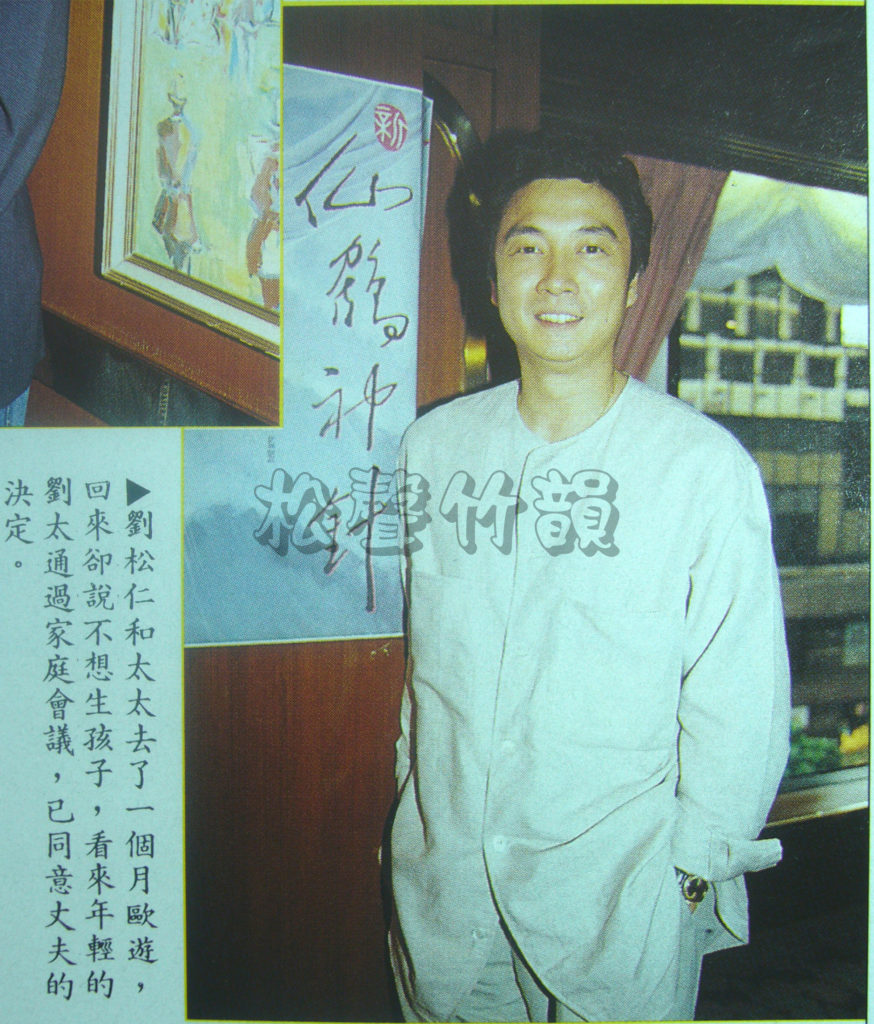 新
仙鶴神針
松聲竹韻
▶劉松仁和太太去了一個月歐遊，
回來卻說不想生孩子，看來年輕的
劉太通過家庭會議，已同意丈夫的
決定。